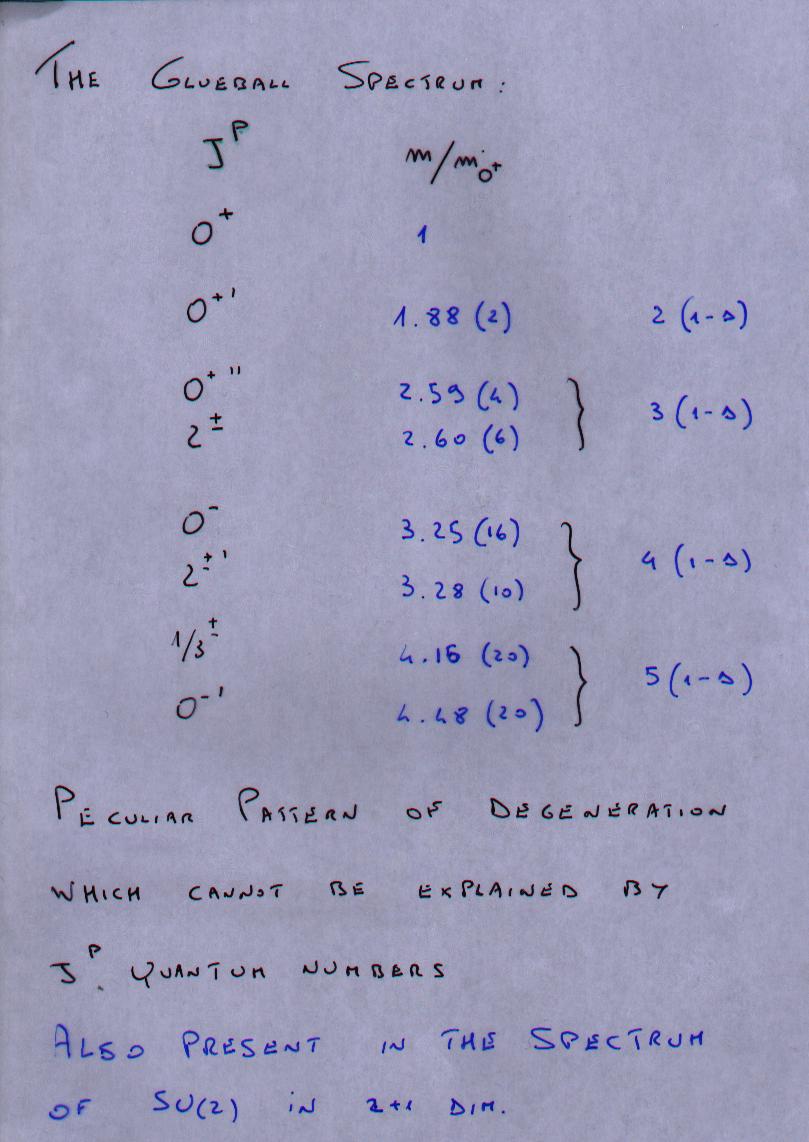 THE GLUEBALL SPECTRUM:
J^P m/m_0+
0^+ 1
0^+' 1.88 (2) 2 (1-Δ)
0^+'' 2.59 (4) } 3 (1-Δ)
2^± 2.60 (6)
0^- 3.25 (16) } 4 (1-Δ)
2^±' 3.28 (10)
1/3^± 4.16 (20) } 5 (1-Δ)
0^-' 4.48 (20)
PECULIAR PATTERN OF DEGENERATION
WHICH CANNOT BE EXPLAINED BY
J^P. QUANTUM NUMBERS
ALSO PRESENT IN THE SPECTRUM
OF SU(2) IN 2+1 DIM.